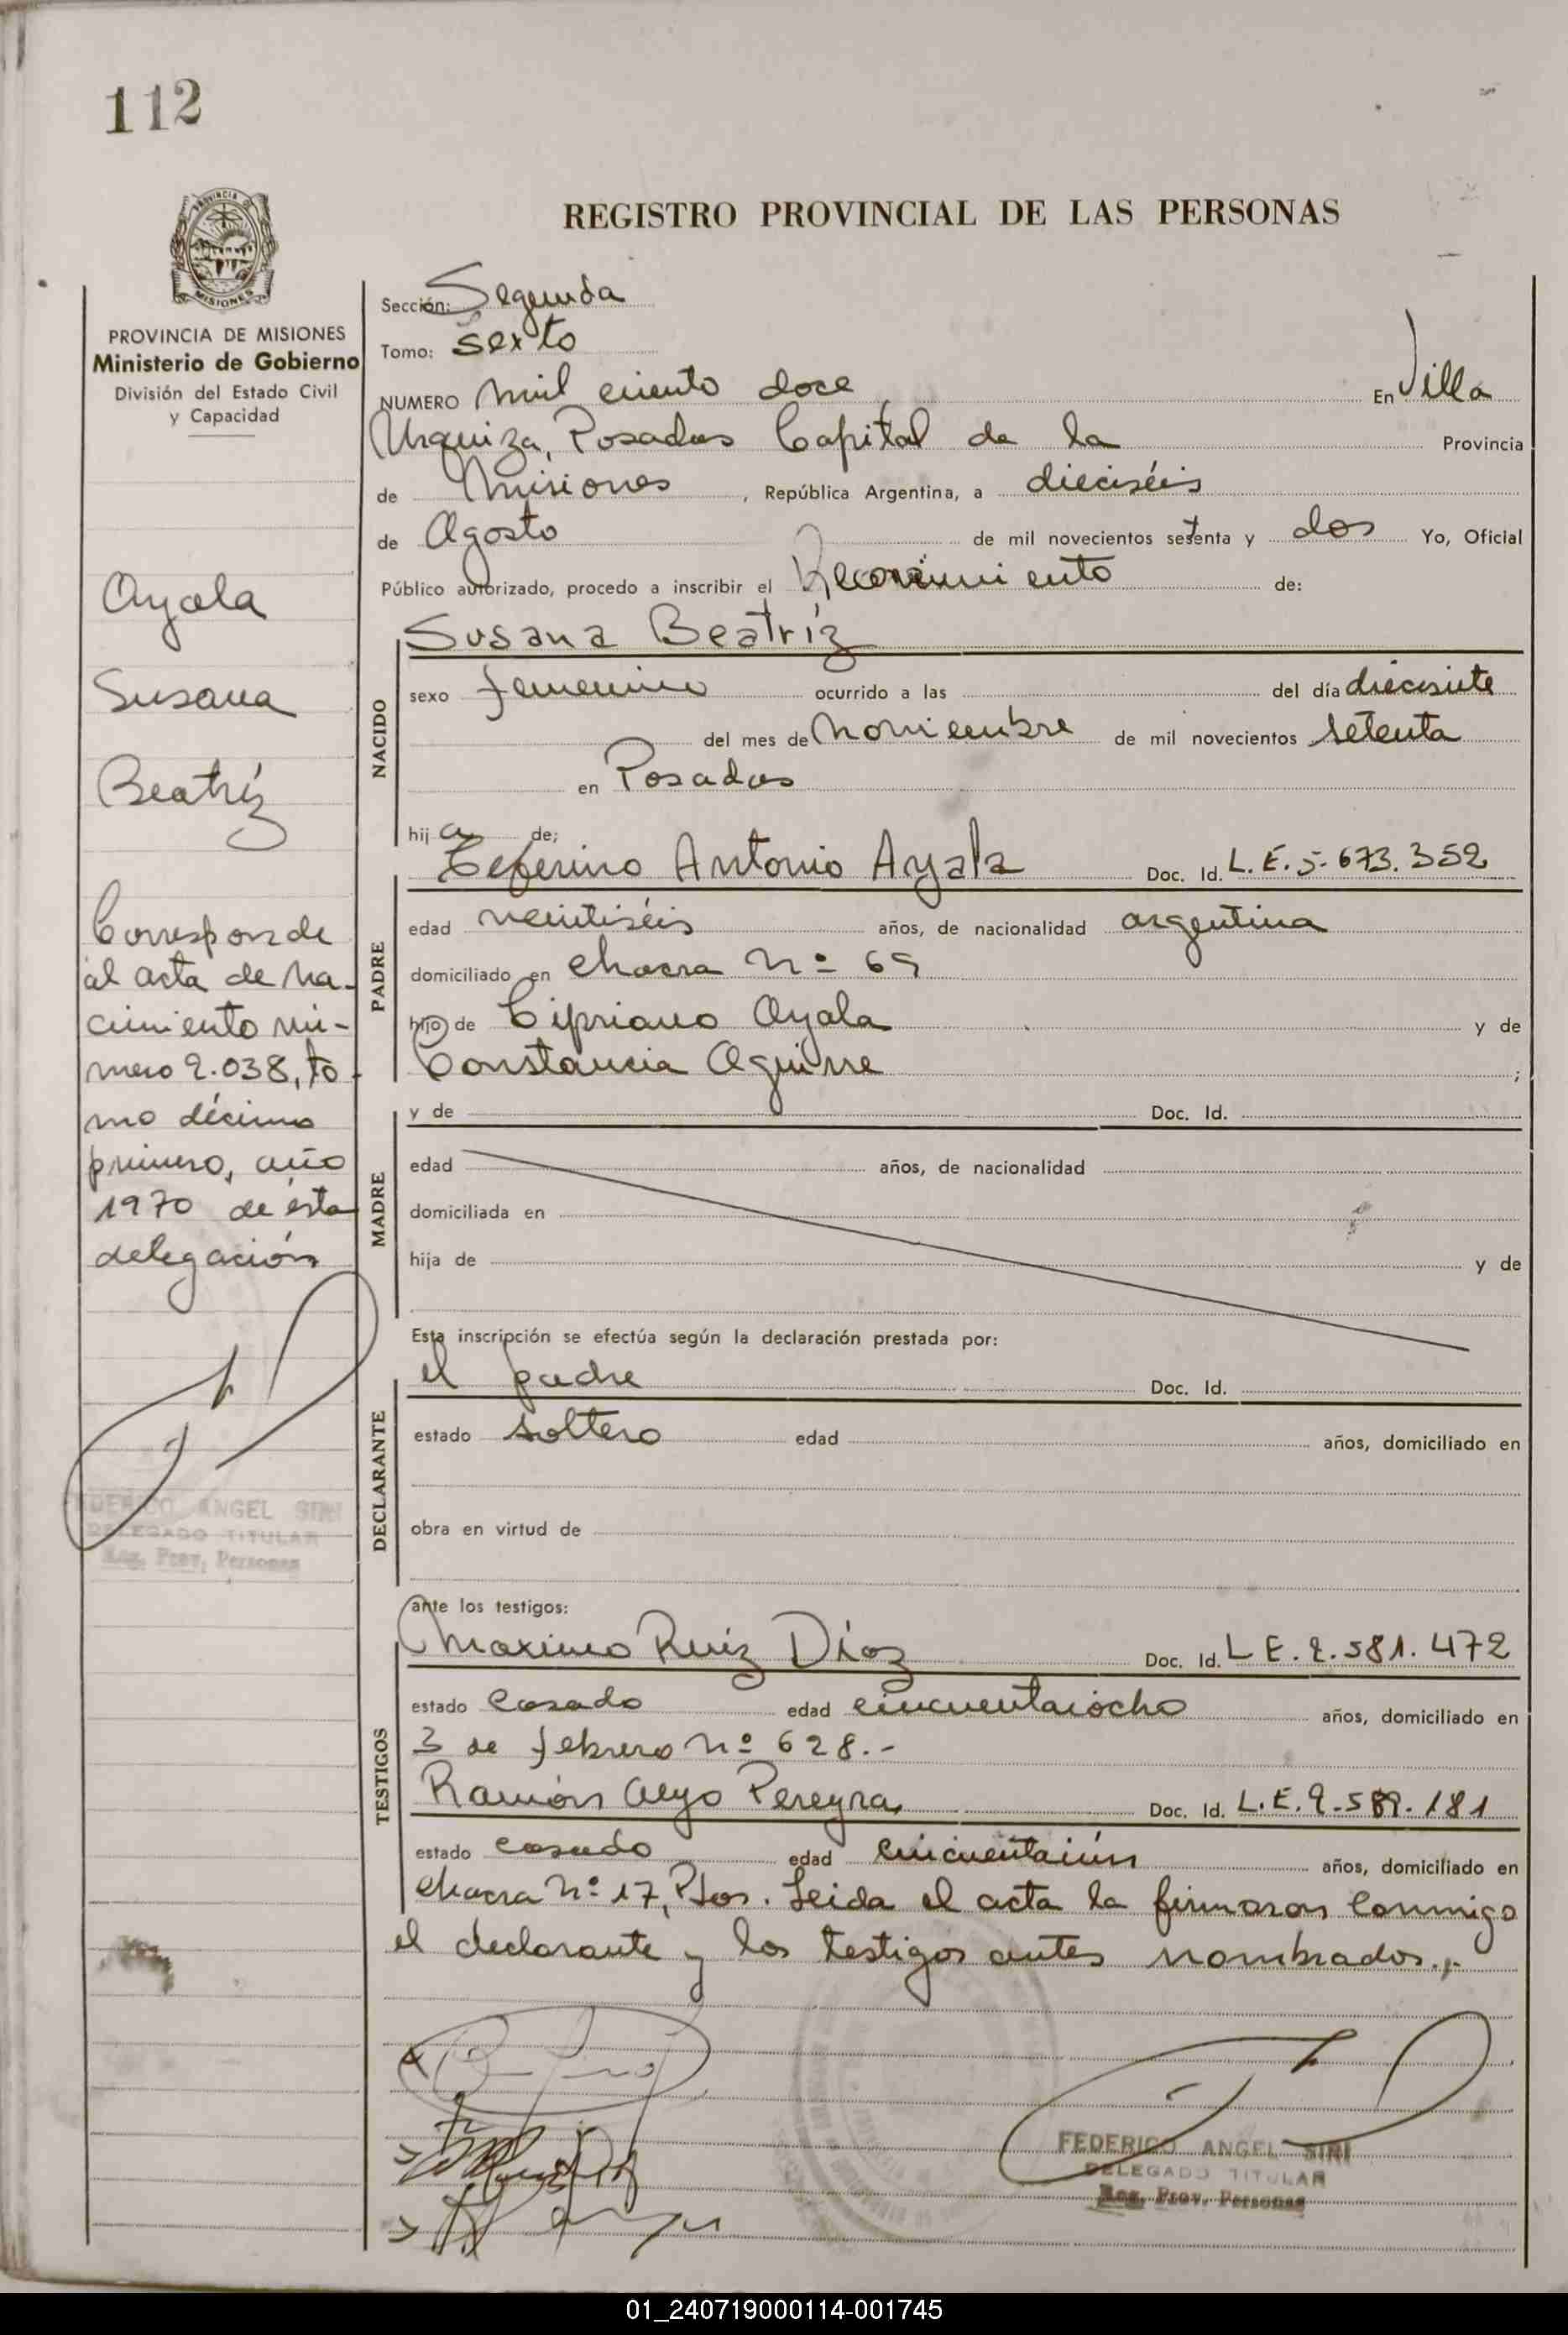 112
PROVINCIA DE
MISIONES
REGISTRO PROVINCIAL DE LAS PERSONAS
PROVINCIA DE MISIONES
Ministerio de Gobierno
División del Estado Civil
y Capacidad
Ayala
Susana
Beatríz
Corresponde
al acta de na-
cimiento nú-
mero 2.038, to-
mo décimo
primero, año
1970 de ésta
delegación
FEDERICO ANGEL SIRI
DELEGADO TITULAR
Reg. Prov. Personas
Sección: Segunda
Tomo: Sexto
NUMERO mil ciento doce En Villa
Urquiza, Posadas Capital de la Provincia
de Misiones, República Argentina, a dieciséis
de Agosto de mil novecientos setenta y dos Yo, Oficial
Público autorizado, procedo a inscribir el Reconocimiento de:
Susana Beatríz
NACIDO
sexo femenino ocurrido a las del día diecisiete
del mes de noviembre de mil novecientos setenta
en Posadas
hija de;
Ceferino Antonio Ayala Doc. Id. L.E. 5.673.352
PADRE
edad veintiséis años, de nacionalidad argentina
domiciliado en chacra Nº 69
hijo de Cipriano Ayala y de
Constancia Aguirre ;
MADRE
y de Doc. Id.
edad años, de nacionalidad
domiciliada en
hija de y de
Esta inscripción se efectúa según la declaración prestada por:
el padre Doc. Id.
DECLARANTE
estado soltero edad años, domiciliado en
obra en virtud de
ante los testigos:
Maximo Ruiz Díaz Doc. Id. L E. 2.581.472
TESTIGOS
estado casado edad cincuentaiocho años, domiciliado en
3 de febrero Nº 628.-
Ramón Pereyra Doc. Id. L.E. 181
estado casado edad cincuentaiún años, domiciliado en
chacra Nº 17, Pdas. Leida el acta la firmaron conmigo
el declarante y los testigos antes nombrados.,-
FEDERICO ANGEL SIRI
DELEGADO TITULAR
Reg. Prov. Personas
01_240719000114-001745